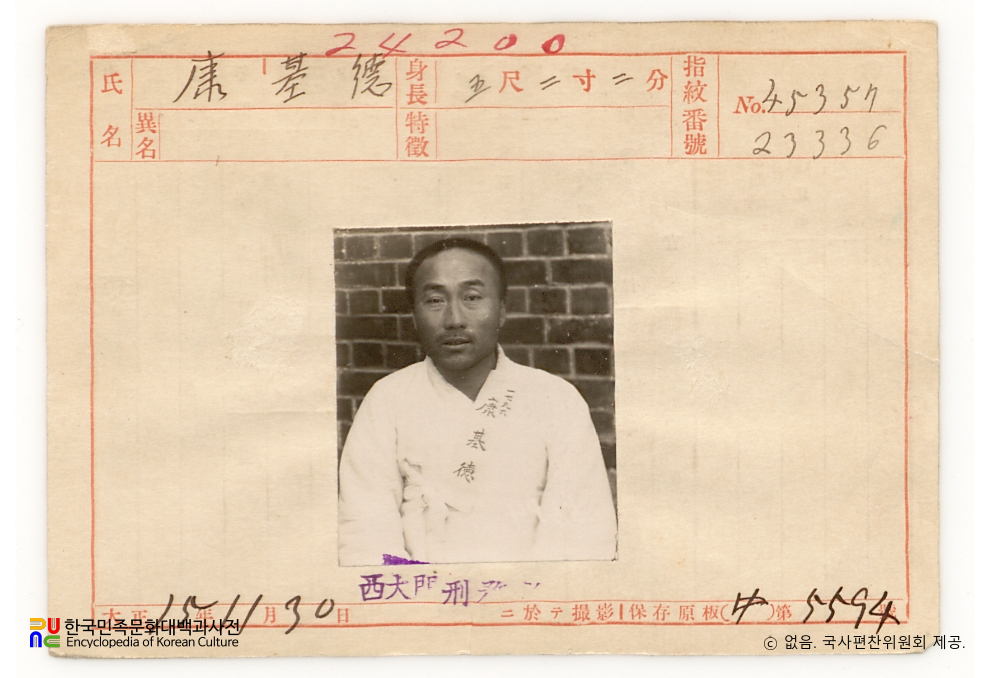 24200
氏名
康基德
異名
身長
五尺二寸二分
特徵
指紋番號
No. 45357
23336
康
基
德
西大門刑
大正15年11月30日
ニ於テ撮影 保存原板(中)第5594號
한국민족문화대백과사전
Encyclopedia of Korean Culture
ⓒ 없음. 국사편찬위원회 제공.